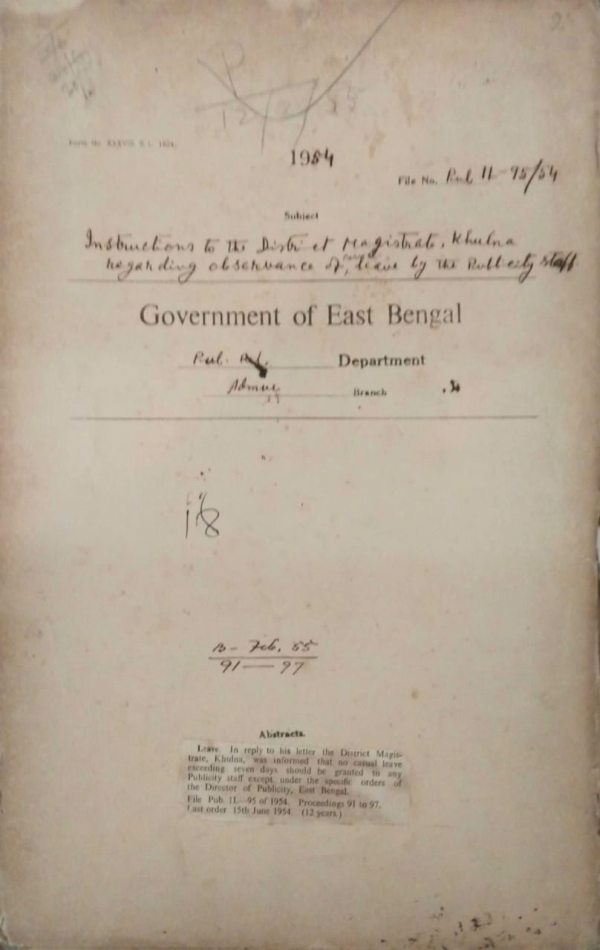 P
12/2/55
1954
File No. Pub II-95/54
Subject
Instructions to the District Magistrate, Khulna
regarding observance of leave by the Publicity staff
Government of East Bengal
Department
Branch
B- Feb. 55
91 — 97
Abstracts.
Leave. In reply to his letter the District Magis-
trate, Khulna, was informed that no casual leave
exceeding seven days should be granted to any
Publicity staff except under the specific orders of
the Director of Publicity, East Bengal.
File Pub. II.—95 of 1954. Proceedings 91 to 97.
Last order 15th June 1954. (12 years.)